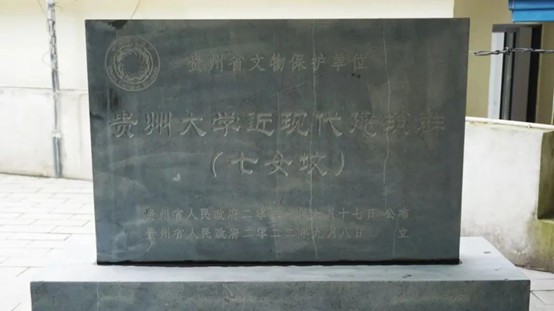 贵州省文物保护单位
贵州大学近现代建筑群
（七女坟）
贵州省人民政府二零二一年 月十七日 公布
贵州省人民政府二零二二年 月八日 立